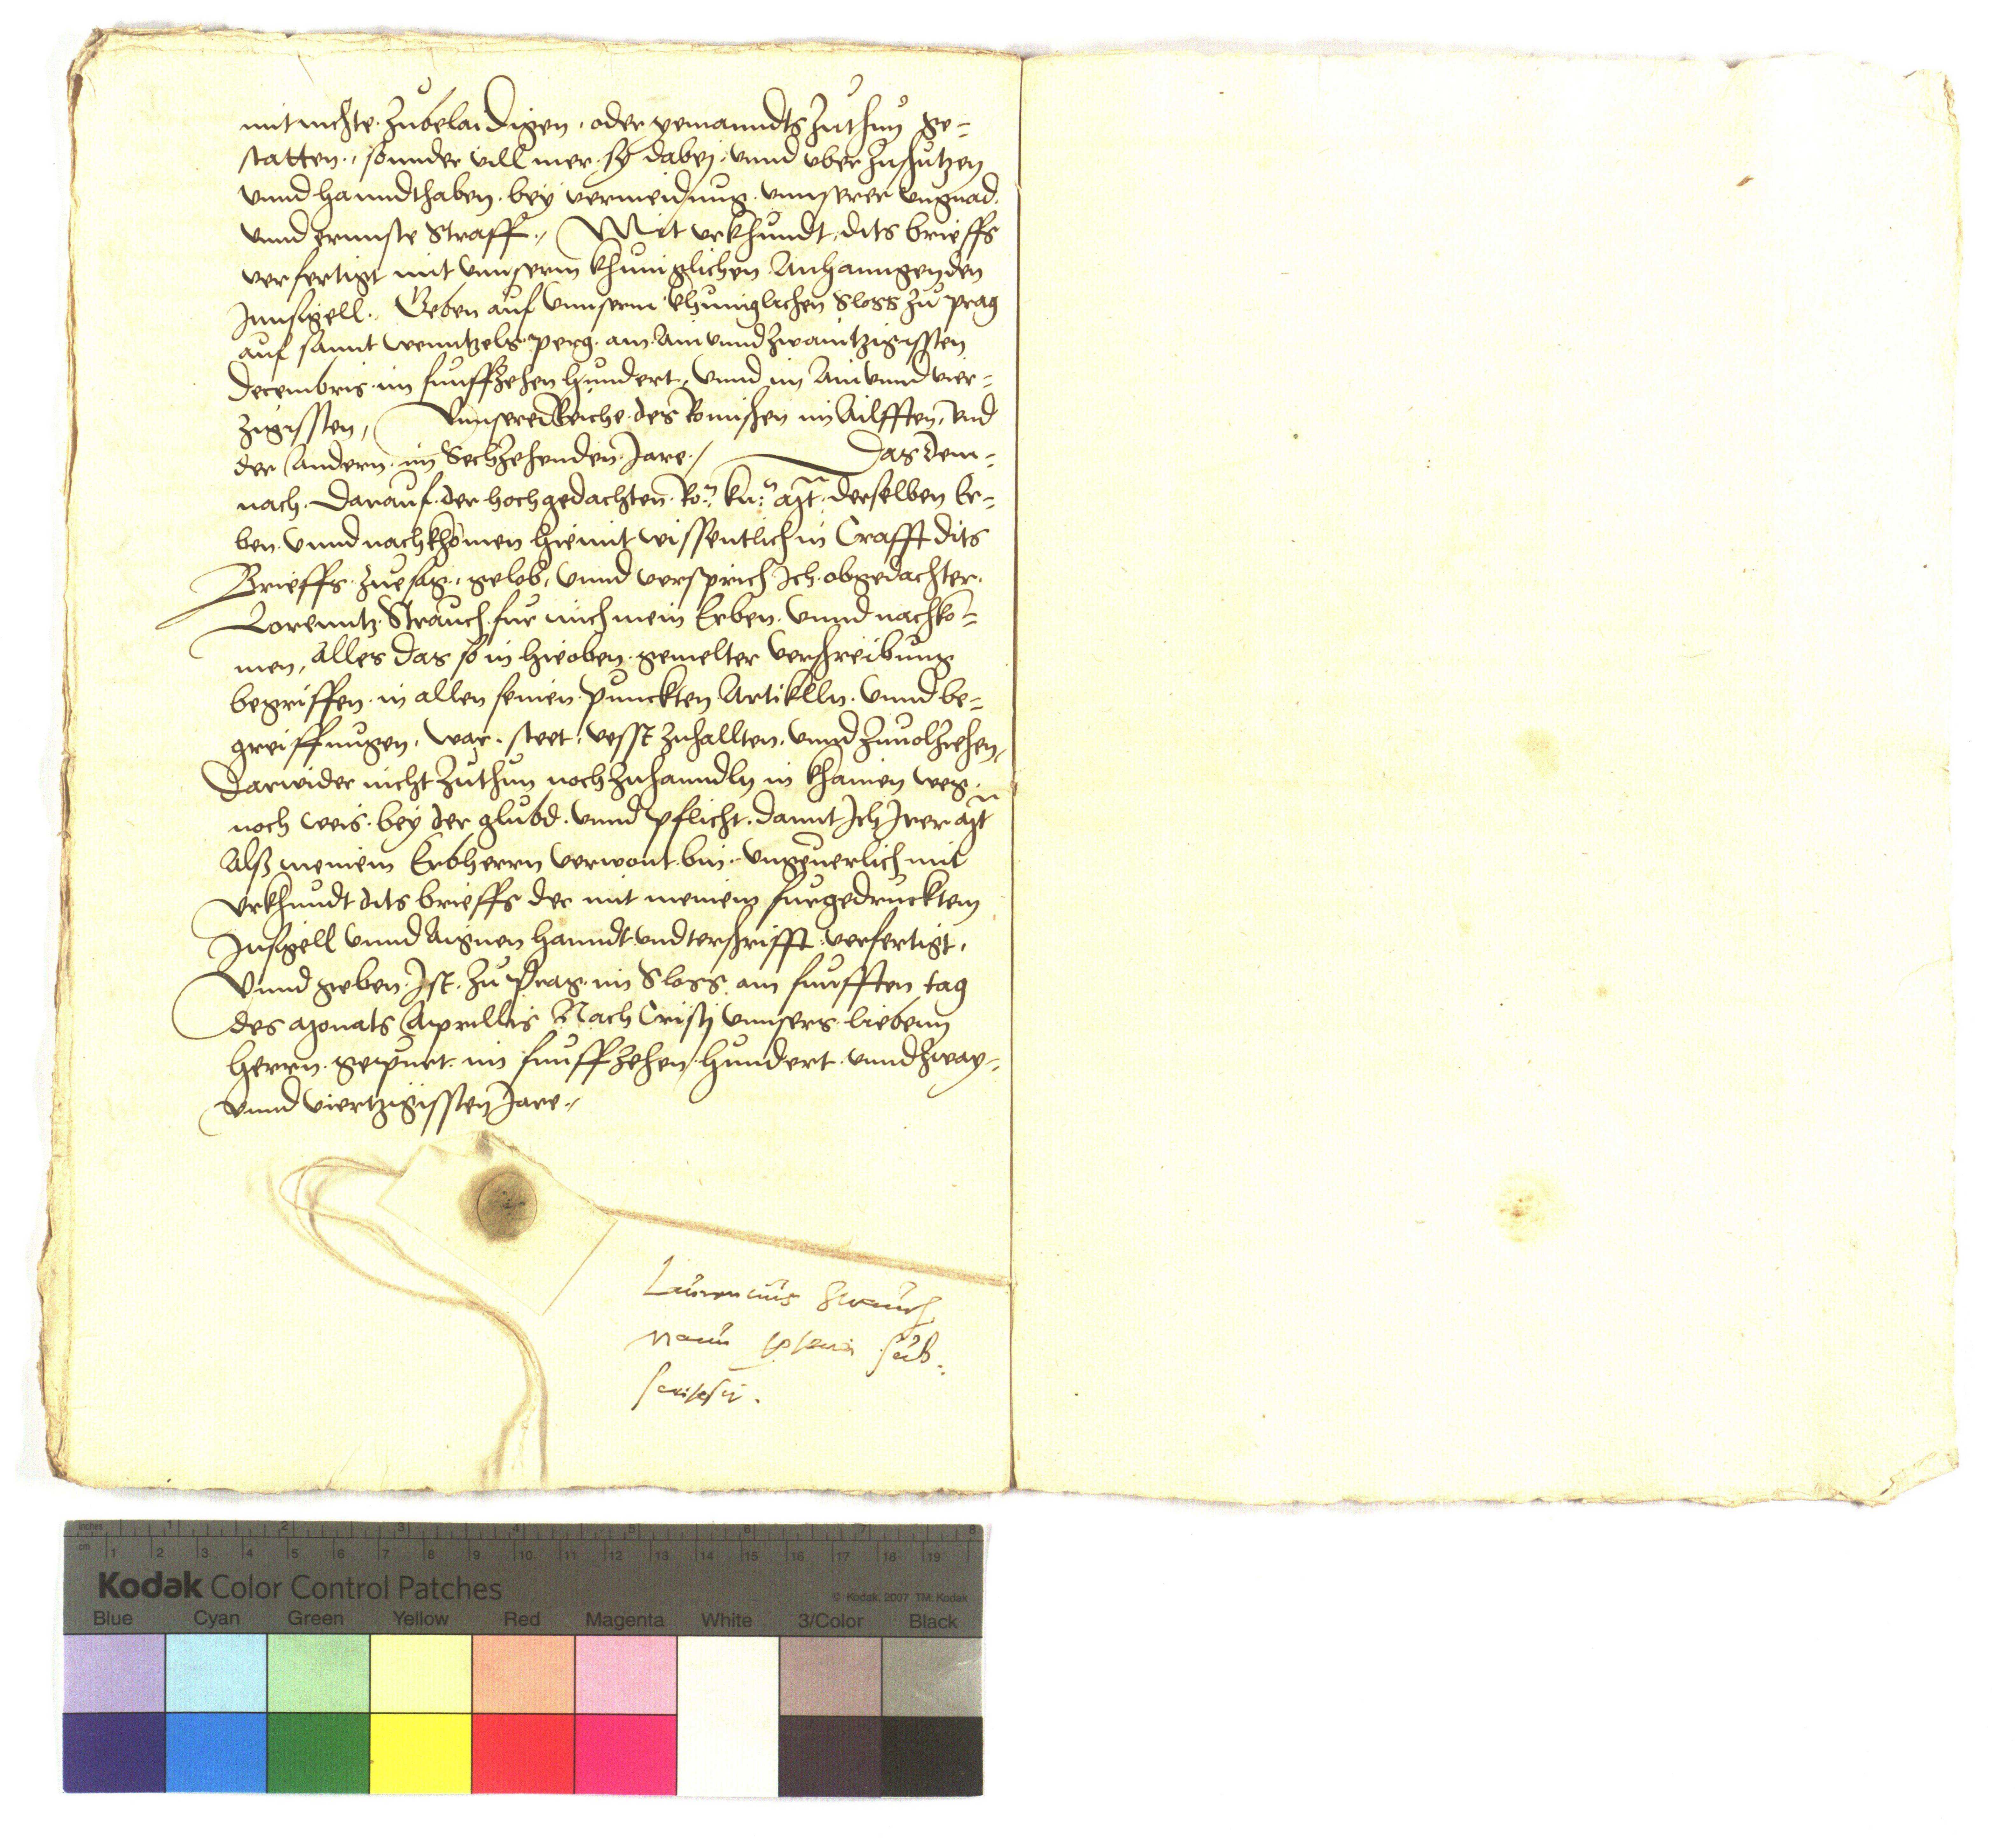 mit nichte zubelaidigen, oder yemanndts zuthun ge=
statten, sonnder vill mer sy dabey, vnnd vber zuschutzen
vnnd hanndthaben, bey vermeidnung vnnserer vngnad
vnnd ernnste Straff. Mit vrkhundt, dits brieffs
verfertigt mit vnnserm khuniglichen Anhanngenden
Innsigell. Geben auf vnnserm khuniglichen Sloss zu prag
auf sannt wenntzels perg am Ain vnnd zwaintzigissten
Decembris im funffzehen hundert, vnnd im Ain vnnd vier=
zigissten, Vnnserer Reiche des Romischen im Ailfften, vnd
der Andern im Sechzehenden Jare. Das dem=
nach. Darauf der hochgedachten Ro: ku: Mt derselben Er=
ben vnnd nachkhomen hiemit wissentlich in Crafft dits
Brieffs zuesag, gelob, vnnd versprich Ich obgedachter
Lorenntz Strauch fur mich mein Erben vnnd nachko=
men, alles das so in hieoben gemelter verschreibung
begriffen in allen seinen punckten Artiklln vnnd be=
greiffnugen, war, steet, vesst zuhallten, vnnd zuuolziehen,
Darwider nicht zuthun noch zuhanndln in khainen weg
noch weis. bey der glubd vnnd pflicht, damit Ich Irer Mt
Alls meinem Erbherrn verwont bin. vngeuerlich mit
Vrkhundt dits brieffs der mit meinem furgedrucktem
Insigell vnnd Aignen hanndt vndterschrifft verfertigt,
Vnnd geben Ist. zu Prag im Sloss am funfften tag
des Monats Aprillis Nach Cristj vnnsers liebenn
herrn gepurt im funffzehen hundert vnnd zway=
vnnd viertzigissten Jare.
Laurencius Strauch
manu propria sub=
scripsit.
inches 1 2 3 4 5 6 7 8
cm 1 2 3 4 5 6 7 8 9 10 11 12 13 14 15 16 17 18 19
Kodak Color Control Patches
© Kodak, 2007 TM: Kodak
Blue Cyan Green Yellow Red Magenta White 3/Color Black